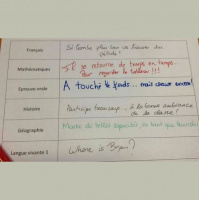 Français
Si tombe plus bas va trouver du
pétrole !
Mathématiques
S'il se retourne de temps en temps...
Pour regarder le tableau !!!
Épreuve orale
A touché le fonds... mais creuse encore !
Histoire
Participe beaucoup... à la bonne ambiance
de la classe !
Géographie
Monte de belles capacités, en tant que
Langue vivante 1
Where is Bryan ?